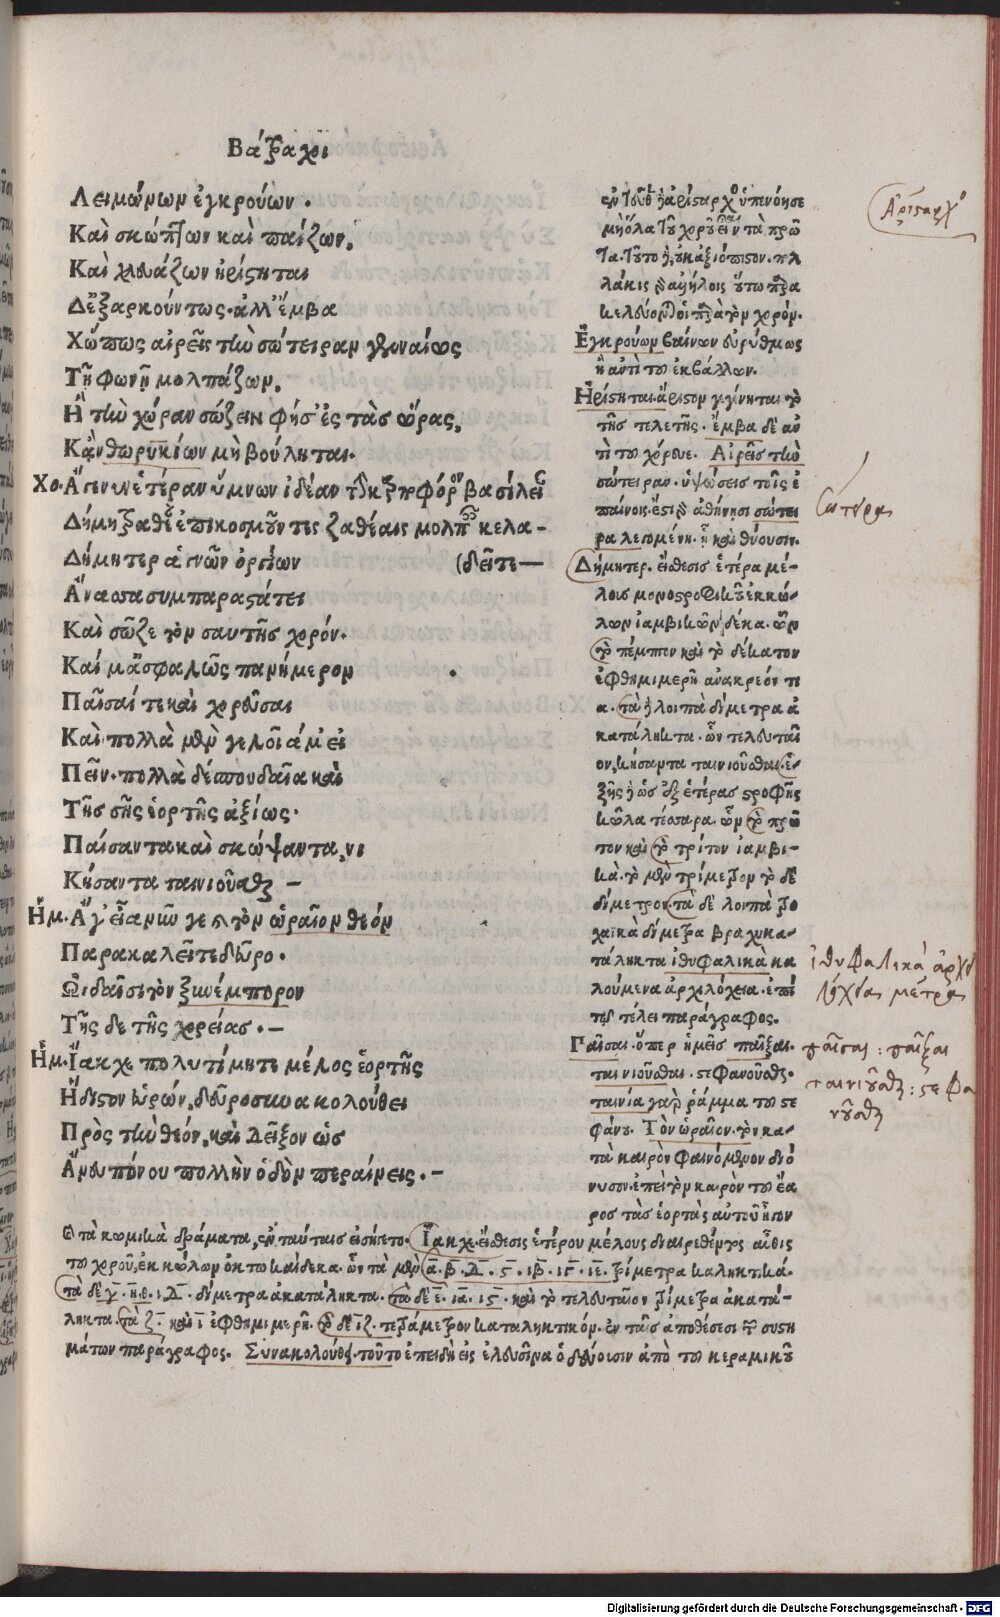 Βάτραχοι
Λειμώνων ἐγκρούων.
Καὶ σκώπτων καὶ παίζων,
Καὶ χλευάζων ἠρίστηται
Δ' ἐξαρκούντως. ἀλλ' ἔμβα
Χὤπως αἰρεῖς τὴν σώτειραν γενναίως
Τῇ φωνῇ μολπάζων,
Ἣ τὴν χώραν σώζειν φήσ' ἐς τὰς ὥρας,
Κἂν θωρυκίων μὴ βούληται.
Χο. Ἄγε νυν ἑτέραν ὕμνων ἰδέαν τὴν καρποφόρον βασίλειαν
Δήμητρα θεὰν ἐπικοσμοῦντες ζαθέαις μολπαῖς κελα-
Δήμητερ ἁγνῶν ὀργίων (δεῖτε—
Ἄνασσα συμπαραστάτει
Καὶ σῶζε τὸν σαυτῆς χορόν.
Καί μ' ἀσφαλῶς πανήμερον
Παῖσαί τε καὶ χορεῦσαι
Καὶ πολλὰ μὲν γελοῖά μ' εἰ
Πεῖν. πολλὰ δὲ σπουδαῖα καὶ
Τῆς σῆς ἑορτῆς ἀξίως.
Παίσαντα καὶ σκώψαντα, νι
Κήσαντα ταινιοῦσθαι —
Ἡμ. Ἄγ' εἶα νῦν γε τὸν ὡραῖον θεὸν
Παρακαλεῖτε δεῦρο.
Ὠιδαῖσι τὸν ξυνέμπορον
Τῆς δε τῆς χορείας. —
Ἡμ. Ἴακχε πολυτίμητε μέλος ἑορτῆς
Ἥδιστον εὑρών, δεῦρο συνακολούθει
Πρὸς τὴν θεόν, καὶ δεῖξον ὡς
Ἄνευ πόνου πολλὴν ὁδὸν περαίνεις. —
μὴ ὅλα τοῦ χοροῦ εἶναι τὰ πρῶ
τα. τοῦτο
λάκις
Ἐγκρούων βαίνων εὐρύθμως
ἢ ἀντὶ τοῦ ἐκβάλλων.
Ἠρίστηται. ἄριστον γεγένηται τὸ
τῆς τελετῆς. ἔμβα δὲ ἀν
τὶ τοῦ χόρευε. Αἰρεῖς τὴν
σώτειραν. ὑψώσεις τοῖς ἐ
παίνοις. ἔστι δὲ ἀθήνησι σώτει
ρα λεγομένη. ᾗ καὶ θύουσιν.
Δήμητερ. εἴσθεσις ἑτέρα μέ-
λους μονοστροφικοῦ ἐκ κώ-
λων ἰαμβικῶν δέκα. ὧν
τὸ πέμπτον καὶ τὸ δέκατον
ἐφθημιμερῆ ἀνακρεόντι
α. τὰ λοιπὰ δίμετρα ἀ
κατάληκτα. ὧν τελευταῖ
ον, κήσαντα ταινιοῦσθαι. ἑ-
ξῆς ὡς ἐξ ἑτέρας στροφῆς
κῶλα τέσσαρα. ὧν τὸ πρῶ
τον καὶ τὸ τρίτον ἰαμβι-
κά. τὸ μὲν τρίμετρον τὸ δὲ
δίμετρον. τὰ δὲ λοιπὰ τρο
χαϊκὰ δίμετρα βραχυκα-
τάληκτα ἰθυφαλικὰ κα
λούμενα ἀρχιλόχεια. ἐπὶ
τῷ τέλει παράγραφος.
Παῖσαι. ὅπερ ἡμεῖς παῖξαι.
ταινιοῦσθαι. στεφανοῦσθαι.
ταινία γὰρ ῥάμμα τοῦ στε
φάνου. Τὸν ὡραῖον. τὸν κα-
τὰ καιρὸν φαινόμενον διό
νυσον. ἐπεὶ τὸν καιρὸν τοῦ ἔα
ρος τὰς ἑορτὰς αὐτοῦ ἦγον
τὰ κωμικὰ δράματα, ἐν ταύταις εἰσήγετο. Ἴακχε. εἴσθεσις ἑτέρου μέλους διαιρεθέντος αὖθις
τοῦ χοροῦ, ἐκ κώλων ὀκτωκαίδεκα. ὧν τὰ μὲν α. β. δ. ϛ. ιβ. ιϛ. ιε. τρίμετρα καληκτικά.
τὰ δὲ γ. η. θ. ιδ. δίμετρα ἀκατάληκτα. τὸ δὲ ε. ια. ιϛ. καὶ τὸ τελευταῖον τρίμετρα ἀκατά-
ληκτα. τὰ ζ. καὶ ι ἐφθημιμερῆ. τὸ δὲ ιζ. τετράμετρον καταληκτικόν. ἐν ταῖς ἀποθέσεσι τῶν συστη
μάτων παράγραφος. Συνακολούθει. τοῦτο ἐπειδὴ εἰς ἐλευσῖνα ὁδεύουσιν ἀπὸ τοῦ κεραμικοῦ
Ἀρίσταρχος
Σωτείρα
ἰθυφαλικὰ ἀρχι
λόχεια μέτρα
παῖσαι : παῖξαι
ταινιοῦσθαι : στεφα
νοῦσθαι
Digitalisierung gefördert durch die Deutsche Forschungsgemeinschaft - DFG